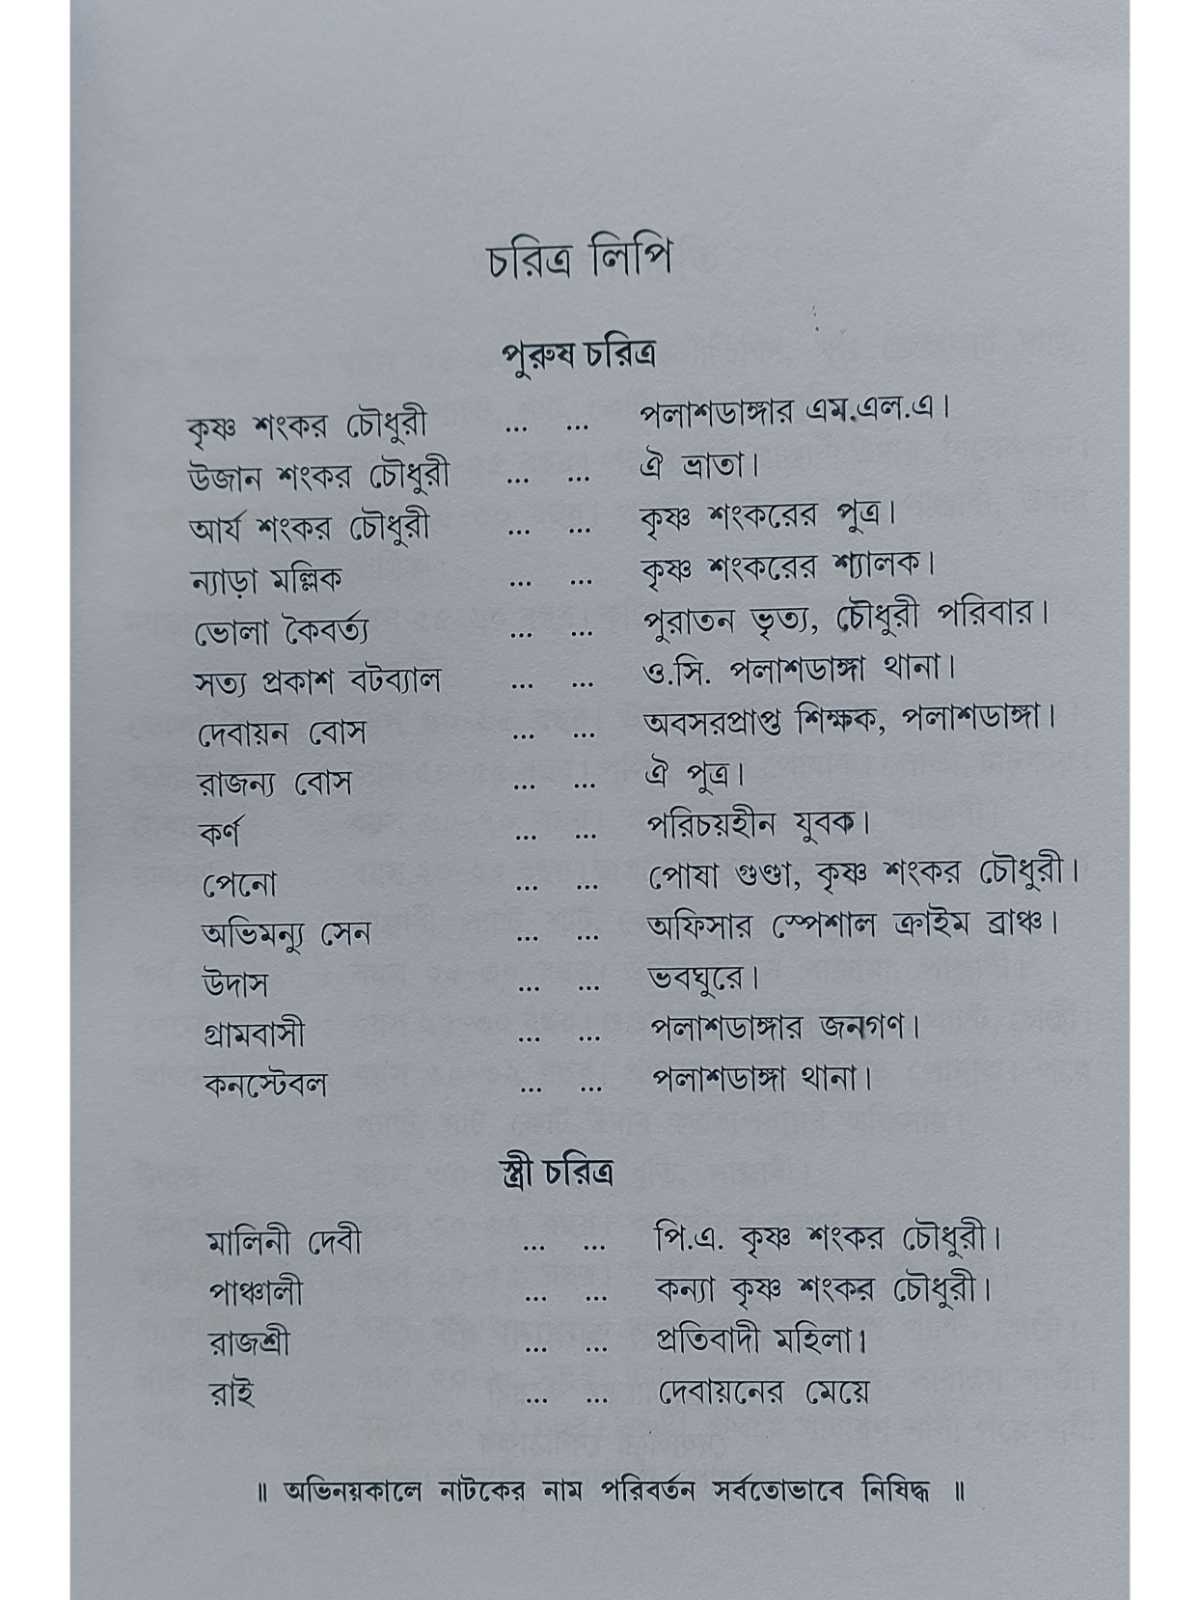 চরিত্র লিপি
পুরুষ চরিত্র
কৃষ্ণ শংকর চৌধুরী ... ... পলাশডাঙ্গার এম.এল.এ।
উজান শংকর চৌধুরী ... ... ঐ ভ্রাতা।
আর্য শংকর চৌধুরী ... ... কৃষ্ণ শংকরের পুত্র।
ন্যাড়া মল্লিক ... ... কৃষ্ণ শংকরের শ্যালক।
ভোলা কৈবর্ত্য ... ... পুরাতন ভৃত্য, চৌধুরী পরিবার।
সত্য প্রকাশ বটব্যাল ... ... ও.সি. পলাশডাঙ্গা থানা।
দেবায়ন বোস ... ... অবসরপ্রাপ্ত শিক্ষক, পলাশডাঙ্গা।
রাজন্য বোস ... ... ঐ পুত্র।
কর্ণ ... ... পরিচয়হীন যুবক।
পেনো ... ... পোষা গুণ্ডা, কৃষ্ণ শংকর চৌধুরী।
অভিমন্যু সেন ... ... অফিসার স্পেশাল ক্রাইম ব্রাঞ্চ।
উদাস ... ... ভবঘুরে।
গ্রামবাসী ... ... পলাশডাঙ্গার জনগণ।
কনস্টেবল ... ... পলাশডাঙ্গা থানা।
স্ত্রী চরিত্র
মালিনী দেবী ... ... পি.এ. কৃষ্ণ শংকর চৌধুরী।
পাঞ্চালী ... ... কন্যা কৃষ্ণ শংকর চৌধুরী।
রাজশ্রী ... ... প্রতিবাদী মহিলা।
রাই ... ... দেবায়নের মেয়ে
॥ অভিনয়কালে নাটকের নাম পরিবর্তন সর্বতোভাবে নিষিদ্ধ ॥